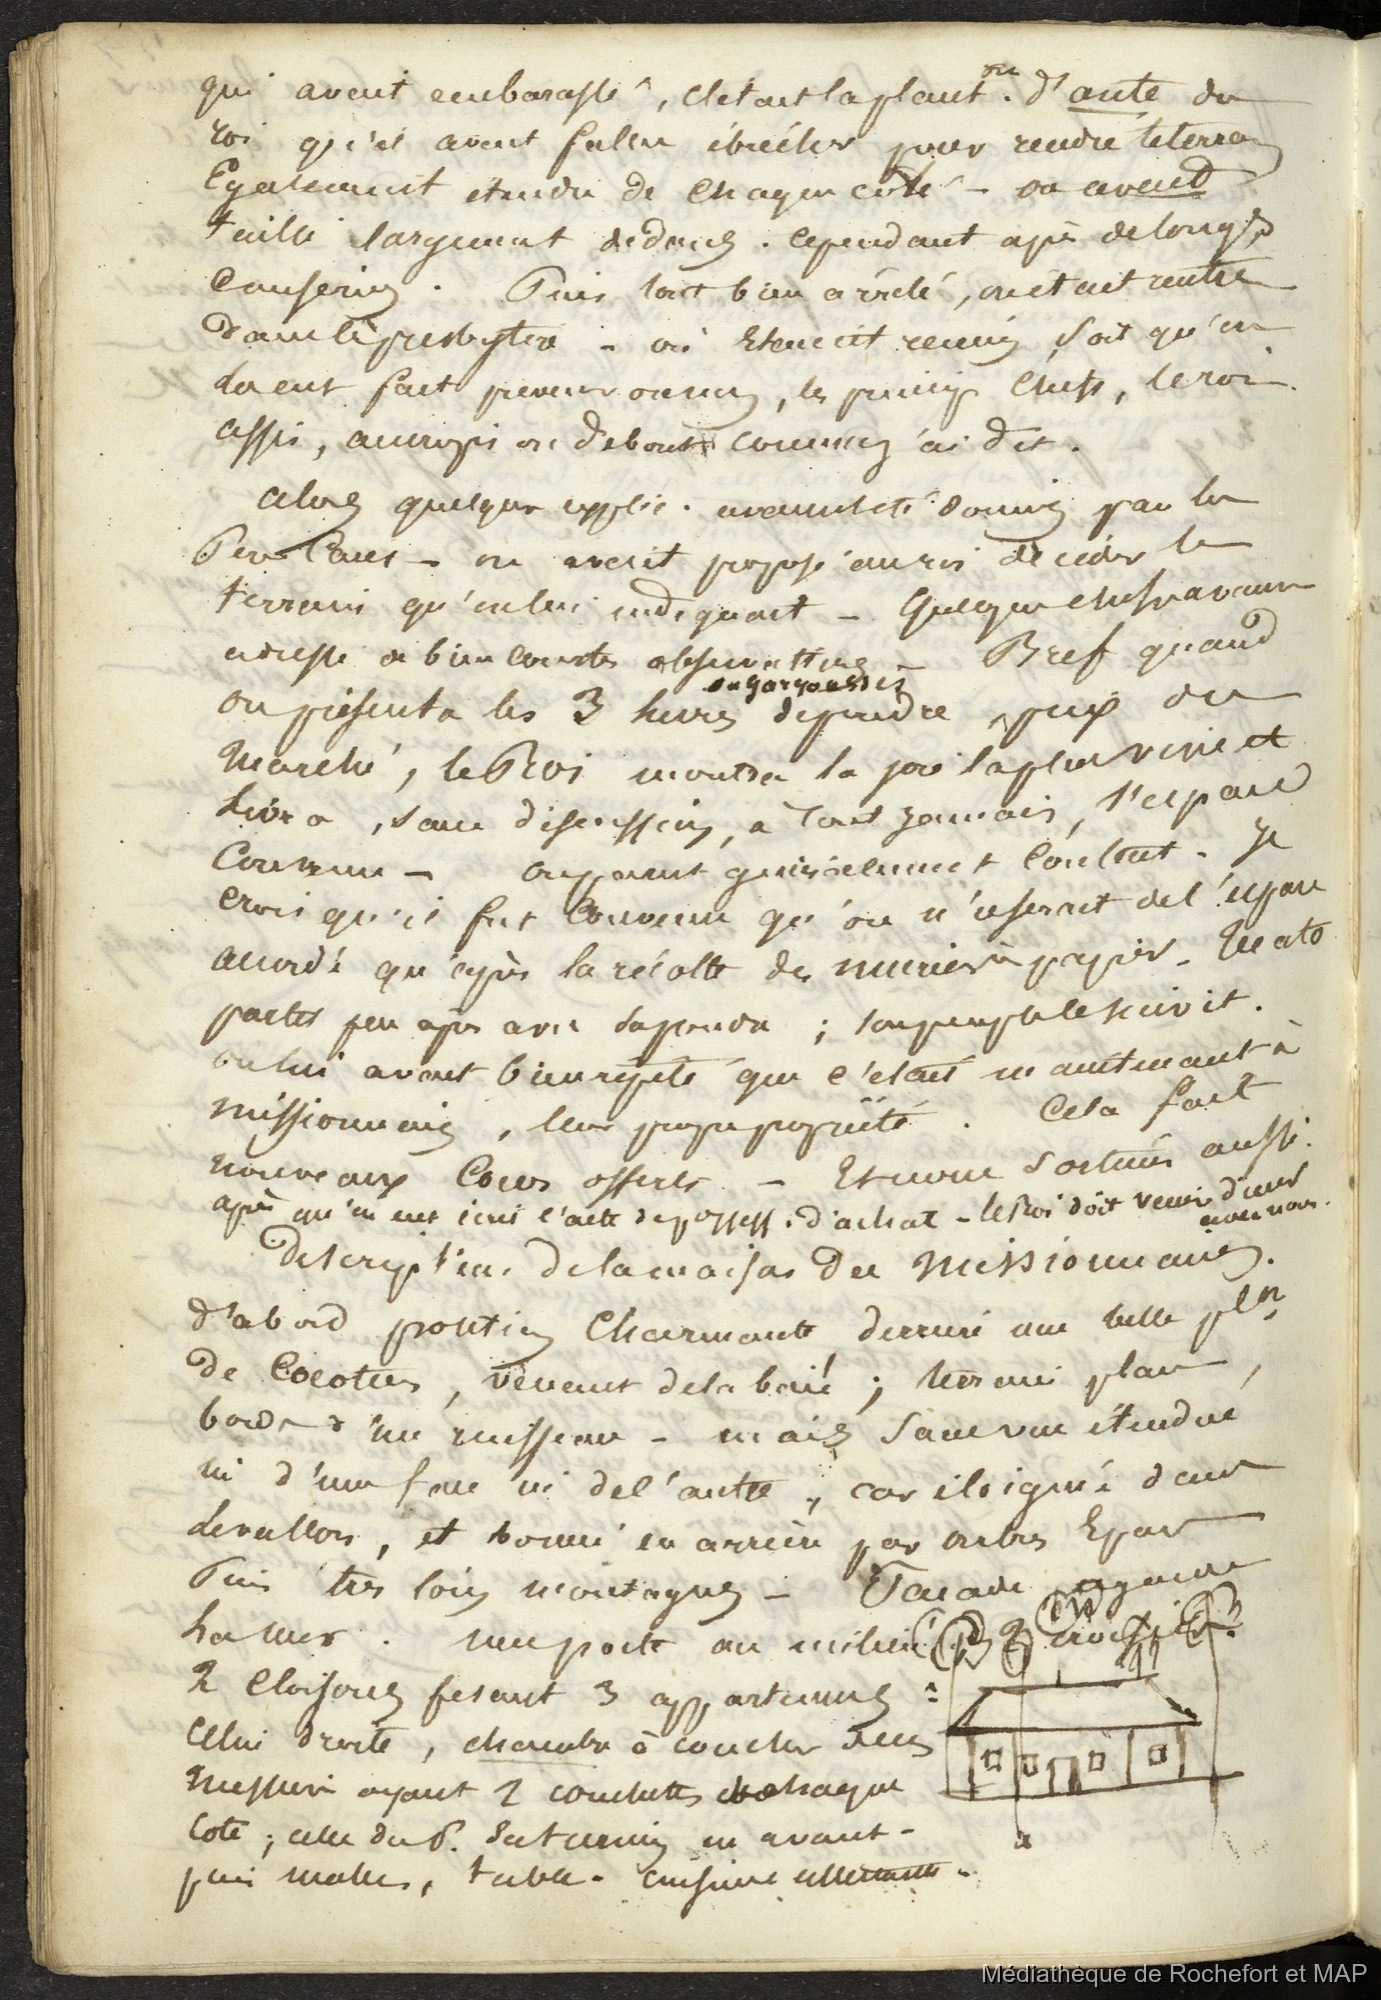 qui avait embarassé, c'était la plant.on d'aute du
roi qu'il avait fallu ébrécher pour rendre le terrain
Egalement étendu de chaque coté - on avait
taillé largement dedans. cependant après de longs
causeries. Puis tout bien arrêté, on était rentré
dans le presbytère - où Etaient reunis, soit qu'on
les eut fait prevenir ou non, les princip. chefs, le roi
assis, accroupis ou debout comme j'ai dit.
alors quelques explic. avaient été donnés par le
Pere - on avait proposé au roi de ceder le
terrain qu'on lui indiquait - Quelques chefs avaient
adressé de bien courtes observations - Bref quand
ou gargousses
on présenta les 3 livres de poudre, prix du
Marché, le Roi montra la joie la plus vive et
livra, sans discussion, à tout jamais, l'espace
Convenu - on parut généralement content. Je
crois qu'il fut convenu qu'on n'userait de l'espace
accordé qu'après la récolte des muriers à papier. Mato
partit peu après avec sa poudre ; son peuple le suivit.
on lui avait bien répété que c'était maintenant à
missionnaires, leur propre propriété. Cela fait
nouveaux Cocos offerts - Et nous sortimes aussi.
après qu'on eut écrit l'acte de possess. d'achat - le Roi doit venir diner
avec nous.
Description de la maison des Missionnaires.
d'abord position charmante, derriere une belle pl.on
de Cocotiers, venant de la baie ; terrain plan,
bords d'un ruisseau - mais sans vue étendue
ni d'une face ni de l'autre, car éloigné dans
le vallon, et borné en arrière par arbres Epars
Puis très loin montagnes - Facade regarde
la mer. une porte au milieu 2 croisées
2 cloisons fesant 3 appartemens :
Celui droite, chambre à coucher des
Messieurs ayant 2 couchettes de chaque
coté ; celle du P. Saturnin en avant -
puis malles, table. cuisine